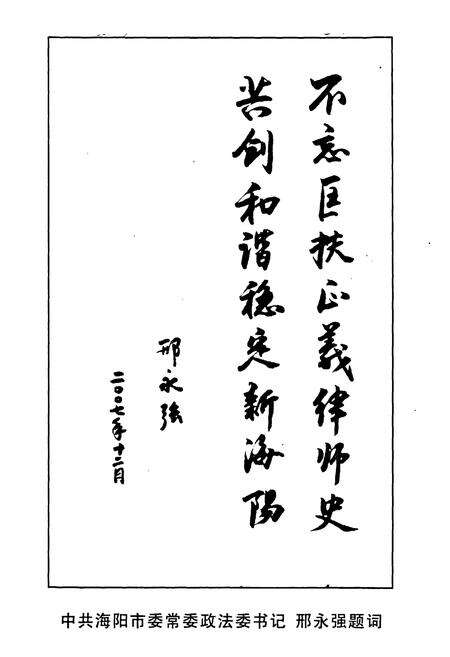 不忘匡扶正义律师史
共创和谐稳定新海阳
邢永强
二〇〇七年十二月
中共海阳市委常委政法委书记 邢永强题词